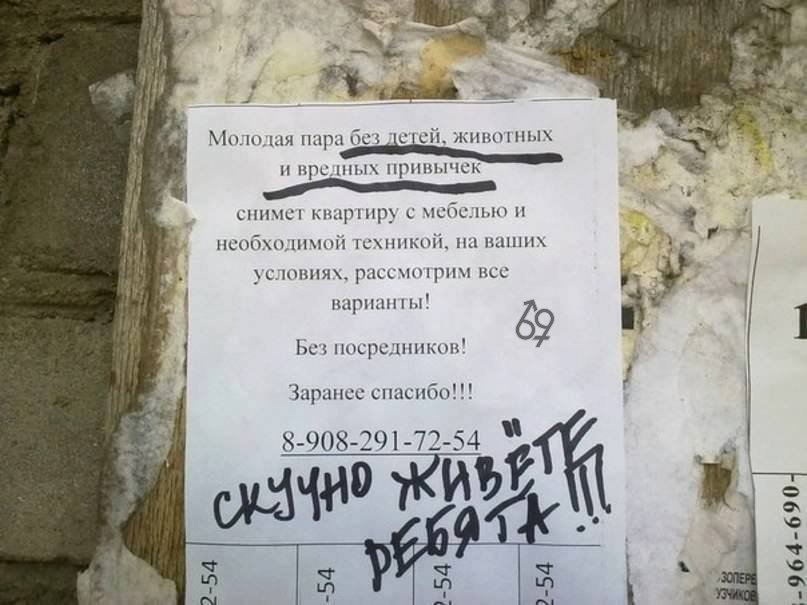 Молодая пара без детей, животных
и вредных привычек
снимет квартиру с мебелью и
необходимой техникой, на ваших
условиях, рассмотрим все
варианты!
Без посредников!
Заранее спасибо!!!
8-908-291-72-54
СКУЧНО ЖИВЁТЕ
РЕБЯТА!!!
2-54
-54
2-54
2-54
-964-690-